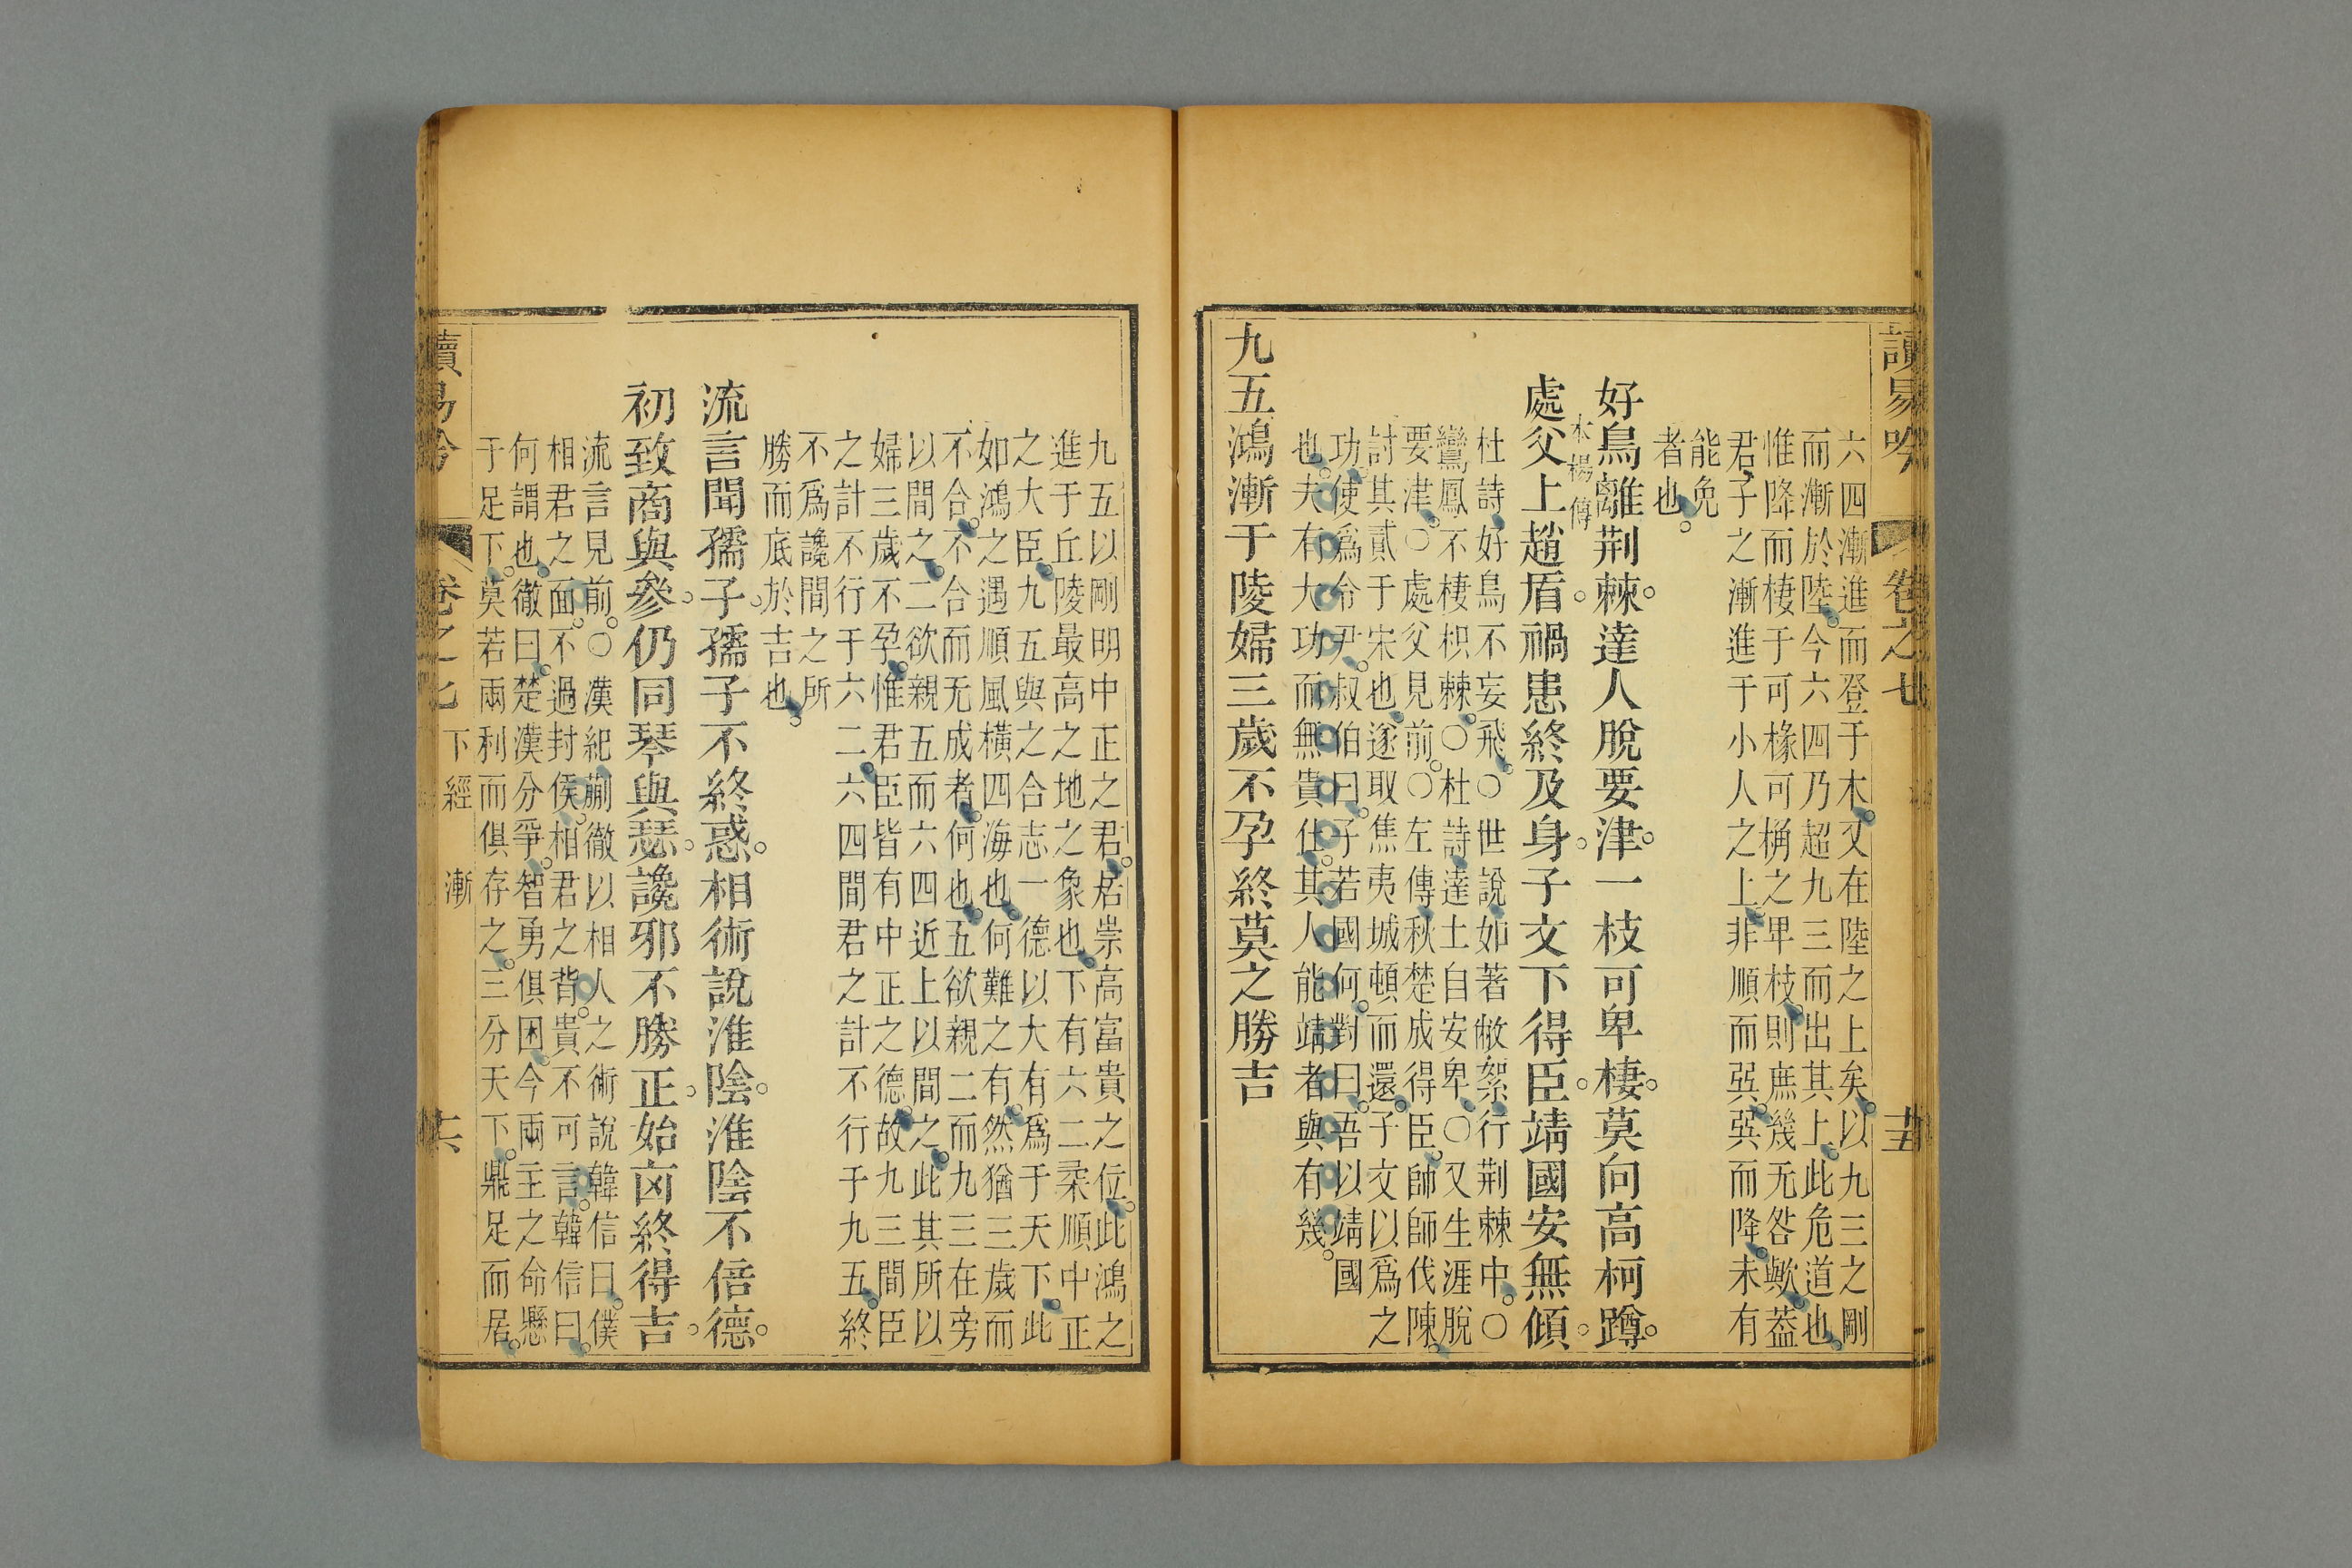 讀易吟 卷之七 十五
六四漸進而登于木又在陸之上矣以九三之剛
而漸於陸今六四乃超九三而出其上此危道也
惟降而棲于可椽可桷之卑枝則庶幾无咎歟葢
君子之漸進于小人之上非順而巽巽而降未有
能免
者也
好鳥離荆棘達人脫要津一枝可卑棲莫向高柯蹲
本楊傳
處父上趙盾禍患終及身子文下得臣靖國安無傾
杜詩好鳥不妄飛〇世說如著敝絮行荆棘中〇
鸞鳳不棲枳棘〇杜詩達士自安卑〇又生涯脫
要津〇處父見前〇左傳秋楚成得臣師師伐陳
討其貳于宋也遂取焦夷城頓而還子文以為之
功使爲令尹叔伯曰子若國何對曰吾以靖國
也夫有大功而無貴仕其人能靖者與有幾
九五鴻漸于陵婦三歲不孕終莫之勝吉
九五以剛明中正之君居崇高富貴之位此鴻之
進于丘陵最高之地之象也下有六二柔順中正
之大臣九五與之合志一德以大有爲于天下此
如鴻之遇順風橫四海也何難之有然猶三歲而
不合不合而无成者何也五欲親二而九三在旁
以間之二欲親五而六四近上以間之此其所以
婦三歲不孕惟君臣皆有中正之德故九三間臣
之計不行于六二六四間君之計不行于九五終
不爲讒間之所
勝而底於吉也
流言聞孺子孺子不終惑相術說淮陰淮陰不倍德
初致商與參仍同琴與瑟讒邪不勝正始㐫終得吉
流言見前〇漢紀蒯徹以相人之術說韓信曰僕
相君之面不過封侯相君之背貴不可言韓信曰
何謂也徹曰楚漢分爭智勇俱困今兩主之命懸
于足下莫若兩利而俱存之三分天下鼎足而居
讀易吟 卷之七 下經 漸 十六